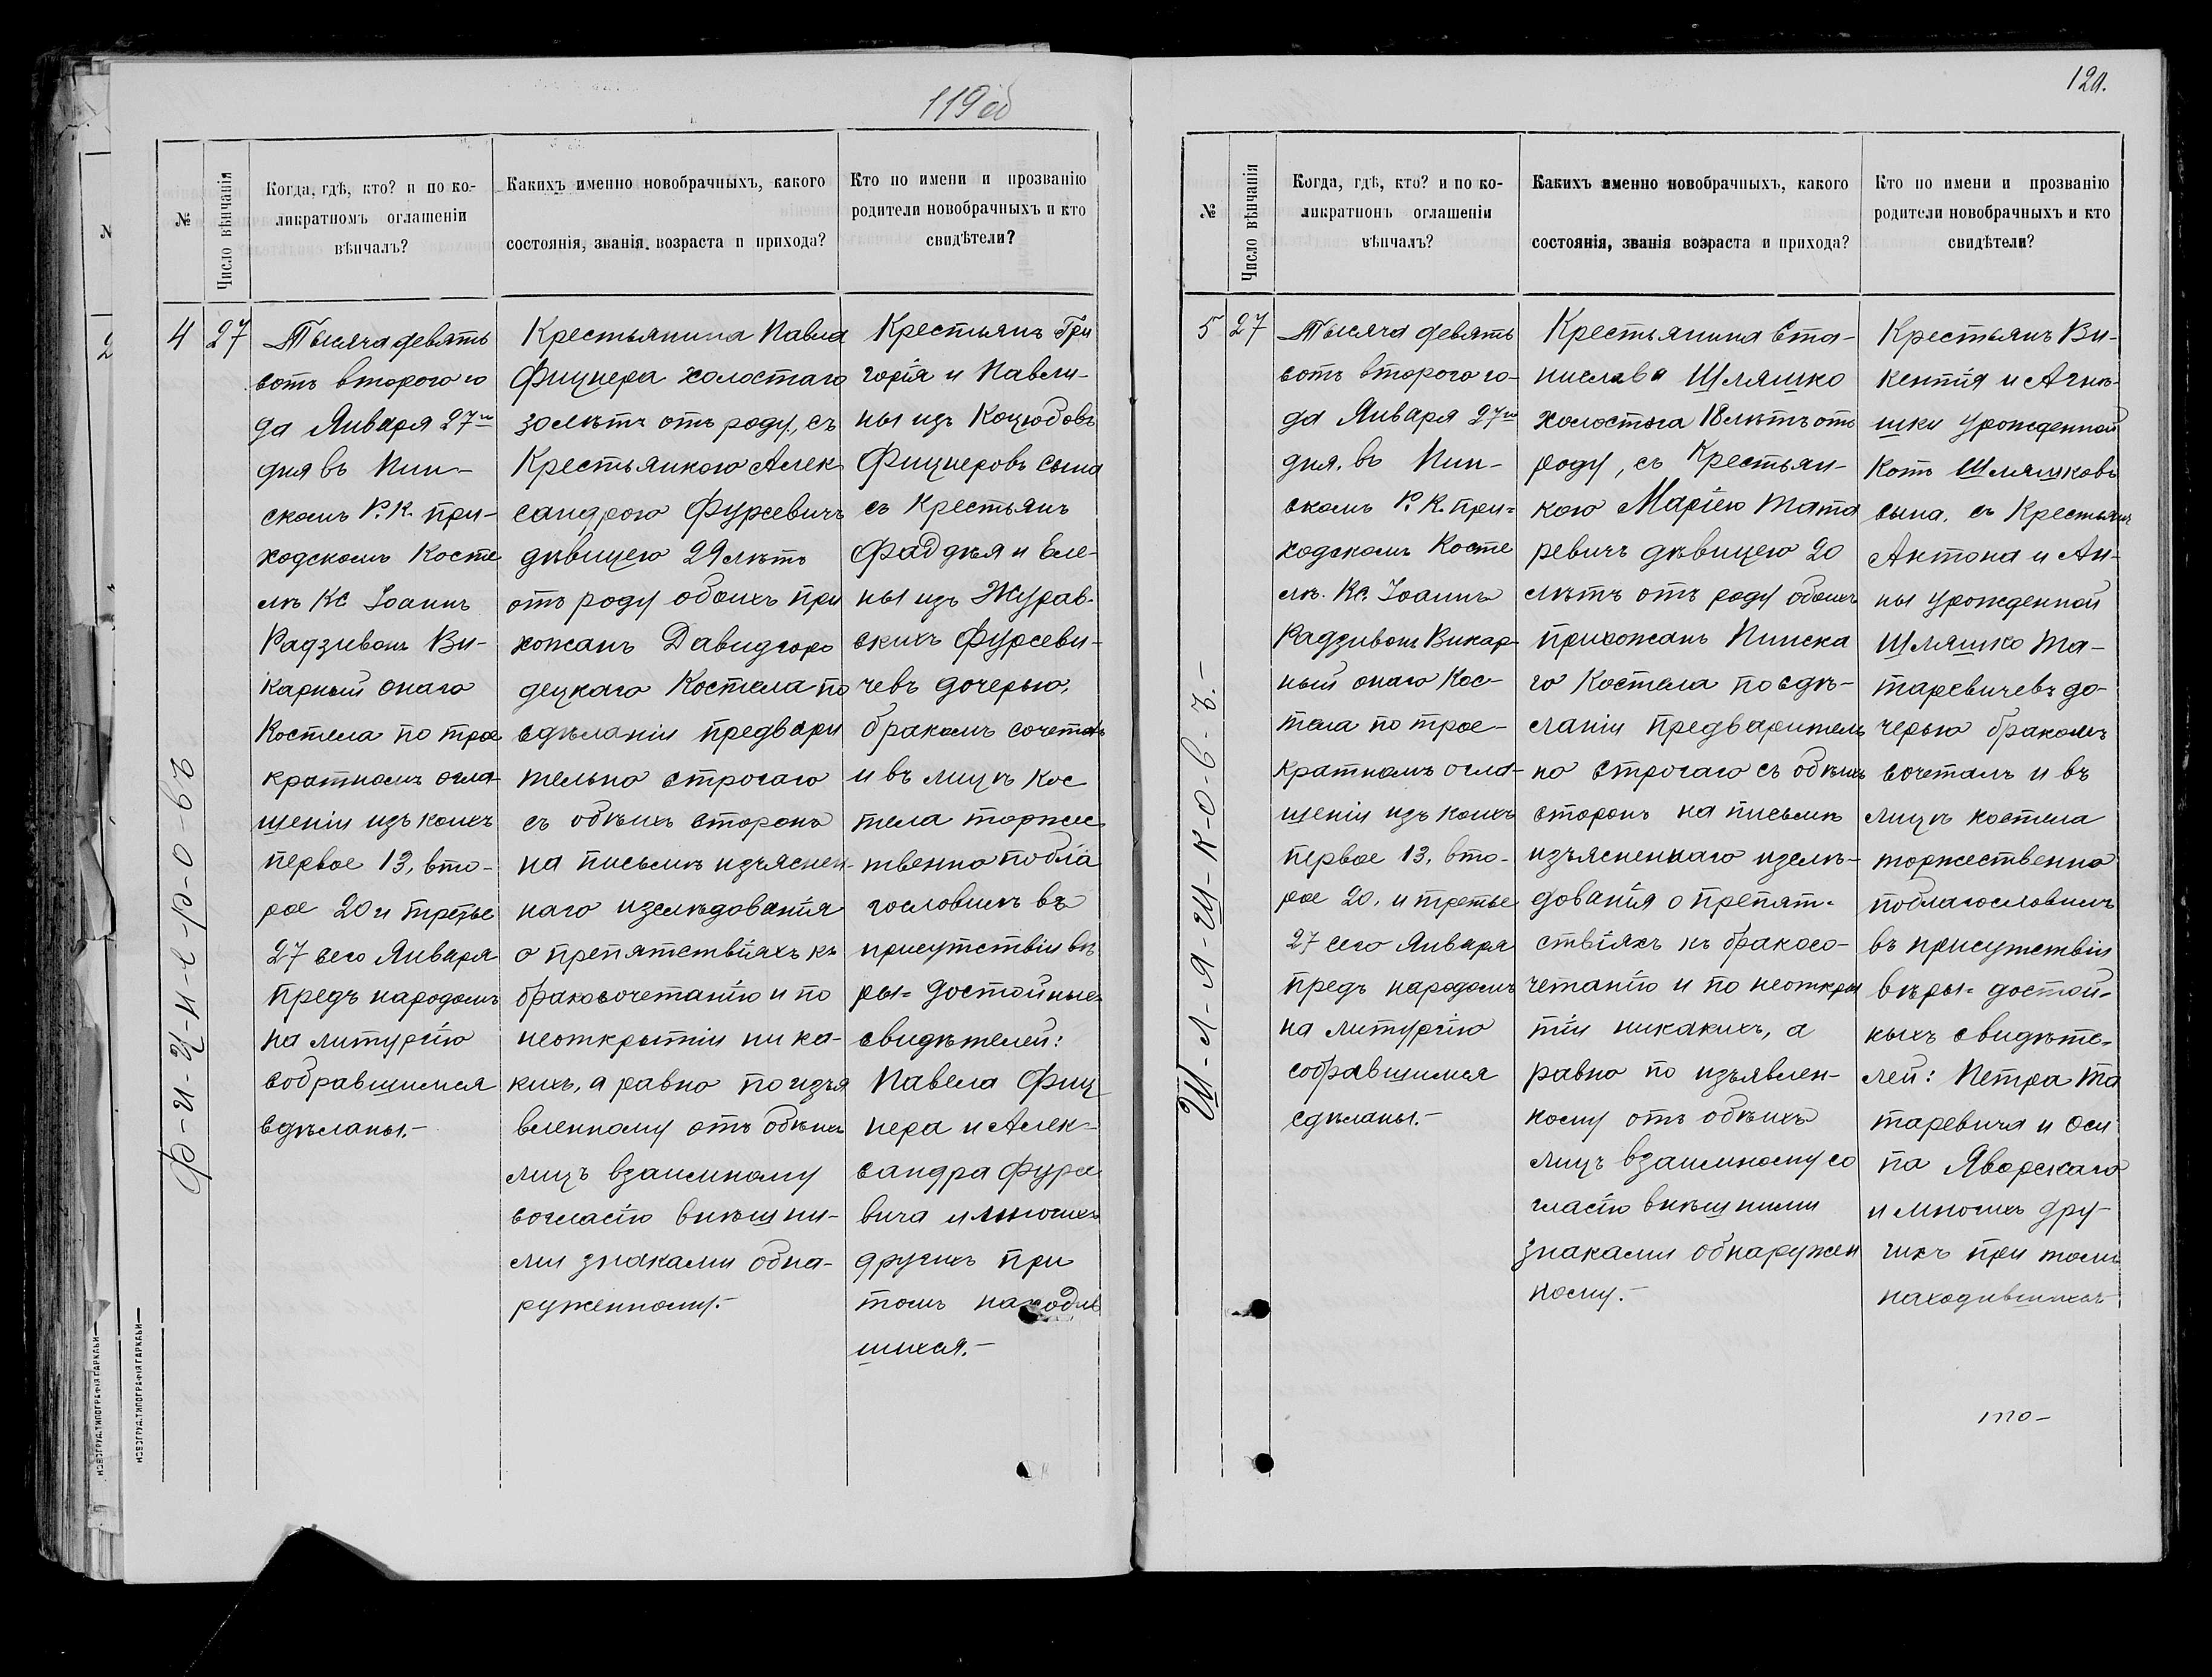 119 об
№
Число вѣнчанія
Когда, гдѣ, кто? и по ко-
ликратномъ оглашеніи
вѣнчалъ?
Какихъ именно новобрачныхъ, какого
состоянія, званія. возраста и прихода?
Кто по имени и прозванію
родители новобрачныхъ и кто
свидѣтели?
4
27
Ф-и-ц-н-е-р-о-въ
Тысяча девять
сотъ второго го
да Января 27го
дня въ Пин-
скомъ Р. К. при-
ходскомъ Косте
лѣ Кс Іоаннъ
Радзивонъ Ви-
карный онаго
Костела по трое
кратномъ огла-
шеніи изъ коихъ
первое 13, вто-
рое 20 и третье
27 сего Января
предъ народомъ
на литургію
собравшимся
сдѣланы.-
Крестьянина Павла
Фицнера холостаго
30 лѣтъ отъ роду, съ
Крестьянкою Алек
сандрою Фурсевичъ
дѣвицею 29 лѣтъ
отъ роду обоихъ при
хожанъ Давидгоро
децкаго Костела по
сдѣланіи предвари
тельно строгаго
съ обѣихъ сторонъ
на письмѣ изъяснен-
наго изслѣдованія
о препятствіяхъ къ
бракосочетанію и по
неоткрытіи ни ка-
кихъ, а равно по изъя
вленному отъ обѣихъ
лицъ взаимному
согласію внѣшни-
ми знаками обна-
руженному.-
Крестьянъ Гри
горія и Павли-
ны изъ Коцюбовъ
Фицнеровъ сына
съ Крестьянъ
Фаддѣя и Еле-
ны изъ Журав-
скихъ Фурсеви-
чевъ дочерью,
бракомъ сочеталъ
и въ лицѣ Кос
тела торжес
твенно побла
гословилъ въ
присутствіи вѣ
ры= достойные
свидѣтелей:
Павела Фиц
нера и Алек-
сандра Фурсе
вича и многихъ
другихъ при
томъ находив
шихся.-
НОВОГРУД. ТИПОГРАФІЯ ГАРКАВЫ—
120.
№
Число вѣнчанія
Когда, гдѣ, кто? и по ко-
ликратномъ оглашеніи
вѣнчалъ?
Какихъ именно новобрачныхъ, какого
состоянія, званія возраста и прихода?
Кто по имени и прозванію
родители новобрачныхъ и кто
свидѣтели?
5
27
Ш-л-я-ш-к-о-в-ъ.-
Тысяча девять
сотъ второго го-
да Января 27го
дня. въ Пин-
скомъ Р. К. при=
ходскомъ Косте
лѣ. Кс. Іоаннъ
Радзивонъ Викар-
ный онаго Кос-
тела по трое-
кратномъ огла-
шеніи изъ коихъ
первое 13, вто-
рое 20. и третье
27 сего Января
предъ народомъ
на литургію
собравшимся
сдѣланы.-
Крестьянина Ста-
нислава Шляшко
холостога 18 лѣтъ отъ
роду, съ Крестьян-
кою Маріею Тата
ревичъ дѣвицею 20
лѣтъ отъ роду обоихъ
прихожанъ Пинска
го Костела по сдѣ-
ланіи предваритель
но строгаго съ обѣихъ
сторонъ на письмѣ
изъясненнаго изслѣ-
дованія о препят-
ствіяхъ къ бракосо-
четанію и по неоткры
тіи никакихъ, а
равно по изъявлен-
ному отъ обѣихъ
лицъ взаимному со
гласію внѣшними
знаками обнаружен
ному.-
Крестьянъ Ви-
кентія и Агнѣ-
шки урожденной
Котъ Шляшковъ
сына, съ Крестьянъ
Антона и Ан-
ны урожденной
Шляшко Та-
таревичевъ до-
черью бракомъ
сочеталъ и въ
лицѣ костела
торжественно
поблагословилъ
въ присутствіи
вѣры= достой-
ныхъ свидѣте-
лей: Петра Та
таревича и Оси
па Яворскаго
и многихъ дру-
гихъ при томъ
находившихся